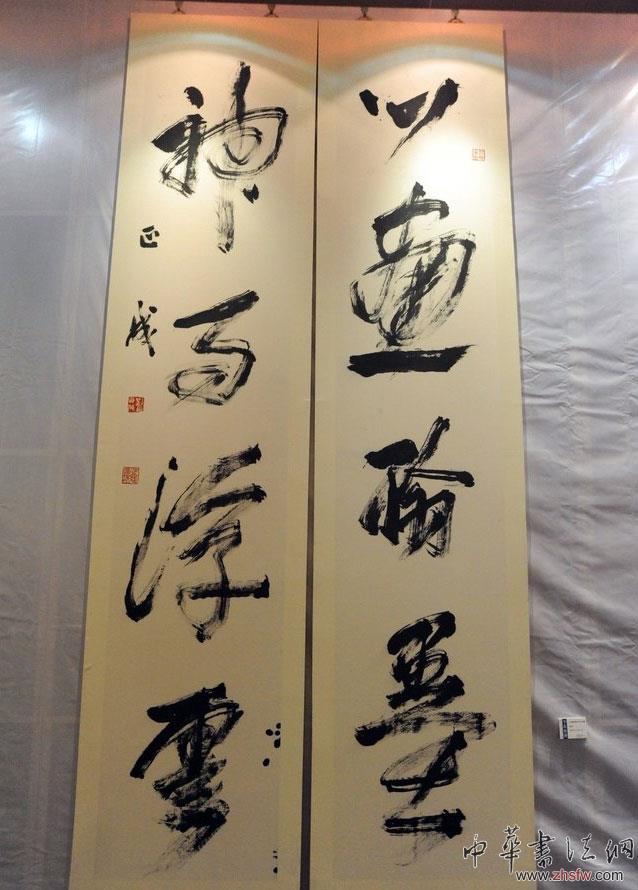 心畫翰墨
神馬浮雲
正成
中華書法網
www.zhsfw.com